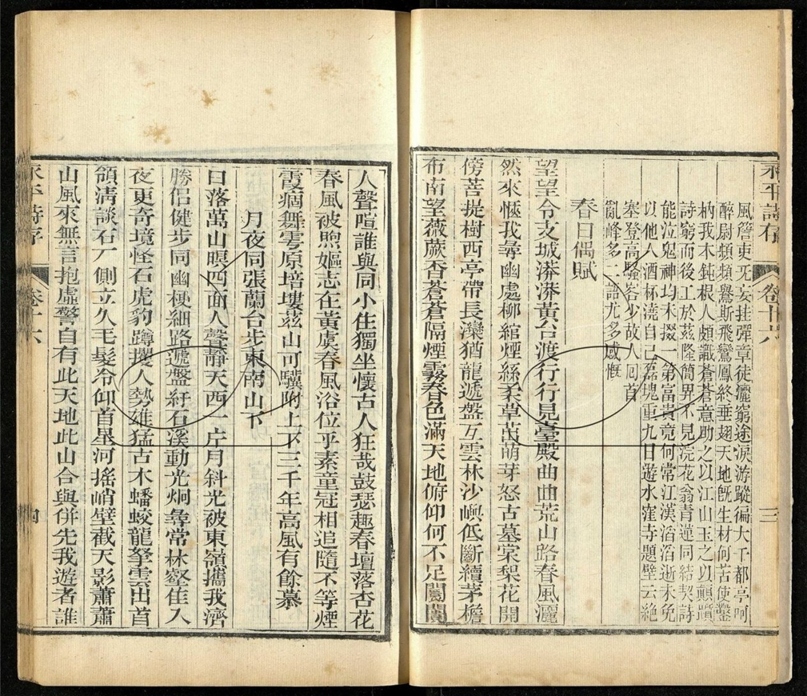 永平詩存 卷十六 三
風詹吏死妄挂彈章徒灑窮途淚游蹤徧大千都亭呵
醉尉頹頹鴛斯飛鸞鳳終垂翅天地既生材何苦使鑿
枘我本鈍根人頗識蒼蒼意助之以江山玉之以顛躓
詩窮而後工於茲隆簡畀不見浣花翁青蓮同結契詩
能泣鬼神均未掇一第富貴竟何常江漢滔滔逝未免
以他人酒杯澆自己磊塊重九日遊水窪寺題壁云絕
塞登高騷客少故人回首
亂峰多二語尤多感慨
春日偶賦
望望令支城漭漭黃台渡行行見臺殿曲曲荒山路春風灑
然來愜我尋幽處柳綰煙絲柔草茁萌芽怒古墓棠梨花開
傍菩提樹西亭帶長濼猶龍遞盤互雲林沙嶼低斷續茅檐
布南望薇蕨香蒼蒼隔煙霧春色滿天地俯仰何不足闐闐
人聲喧誰與同小住獨坐懷古人狂哉鼓瑟趣春壇落杏花
春風被煦嫗志在黃虞春風浴位乎素童冠相追隨不等煙
霞痼舞雩原培塿茲山可驥附上下三千年高風有餘慕
月夜同張蘭台步東南山下
日落萬山暝四面人聲靜天西一片月斜光被東嶺攜我濟
勝侶健步同幽梗細路遞盤紆石溪動光炯尋常林壑佳入
夜更奇境怪石虎豹蹲攫人勢雄猛古木蟠蛟龍拏雲出首
領清談石厂側立久毛髮冷仰首星河搖峭壁截天影蕭蕭
山風來無言抱虛警自有此天地此山合與併先我遊者誰
永平詩存 卷十六